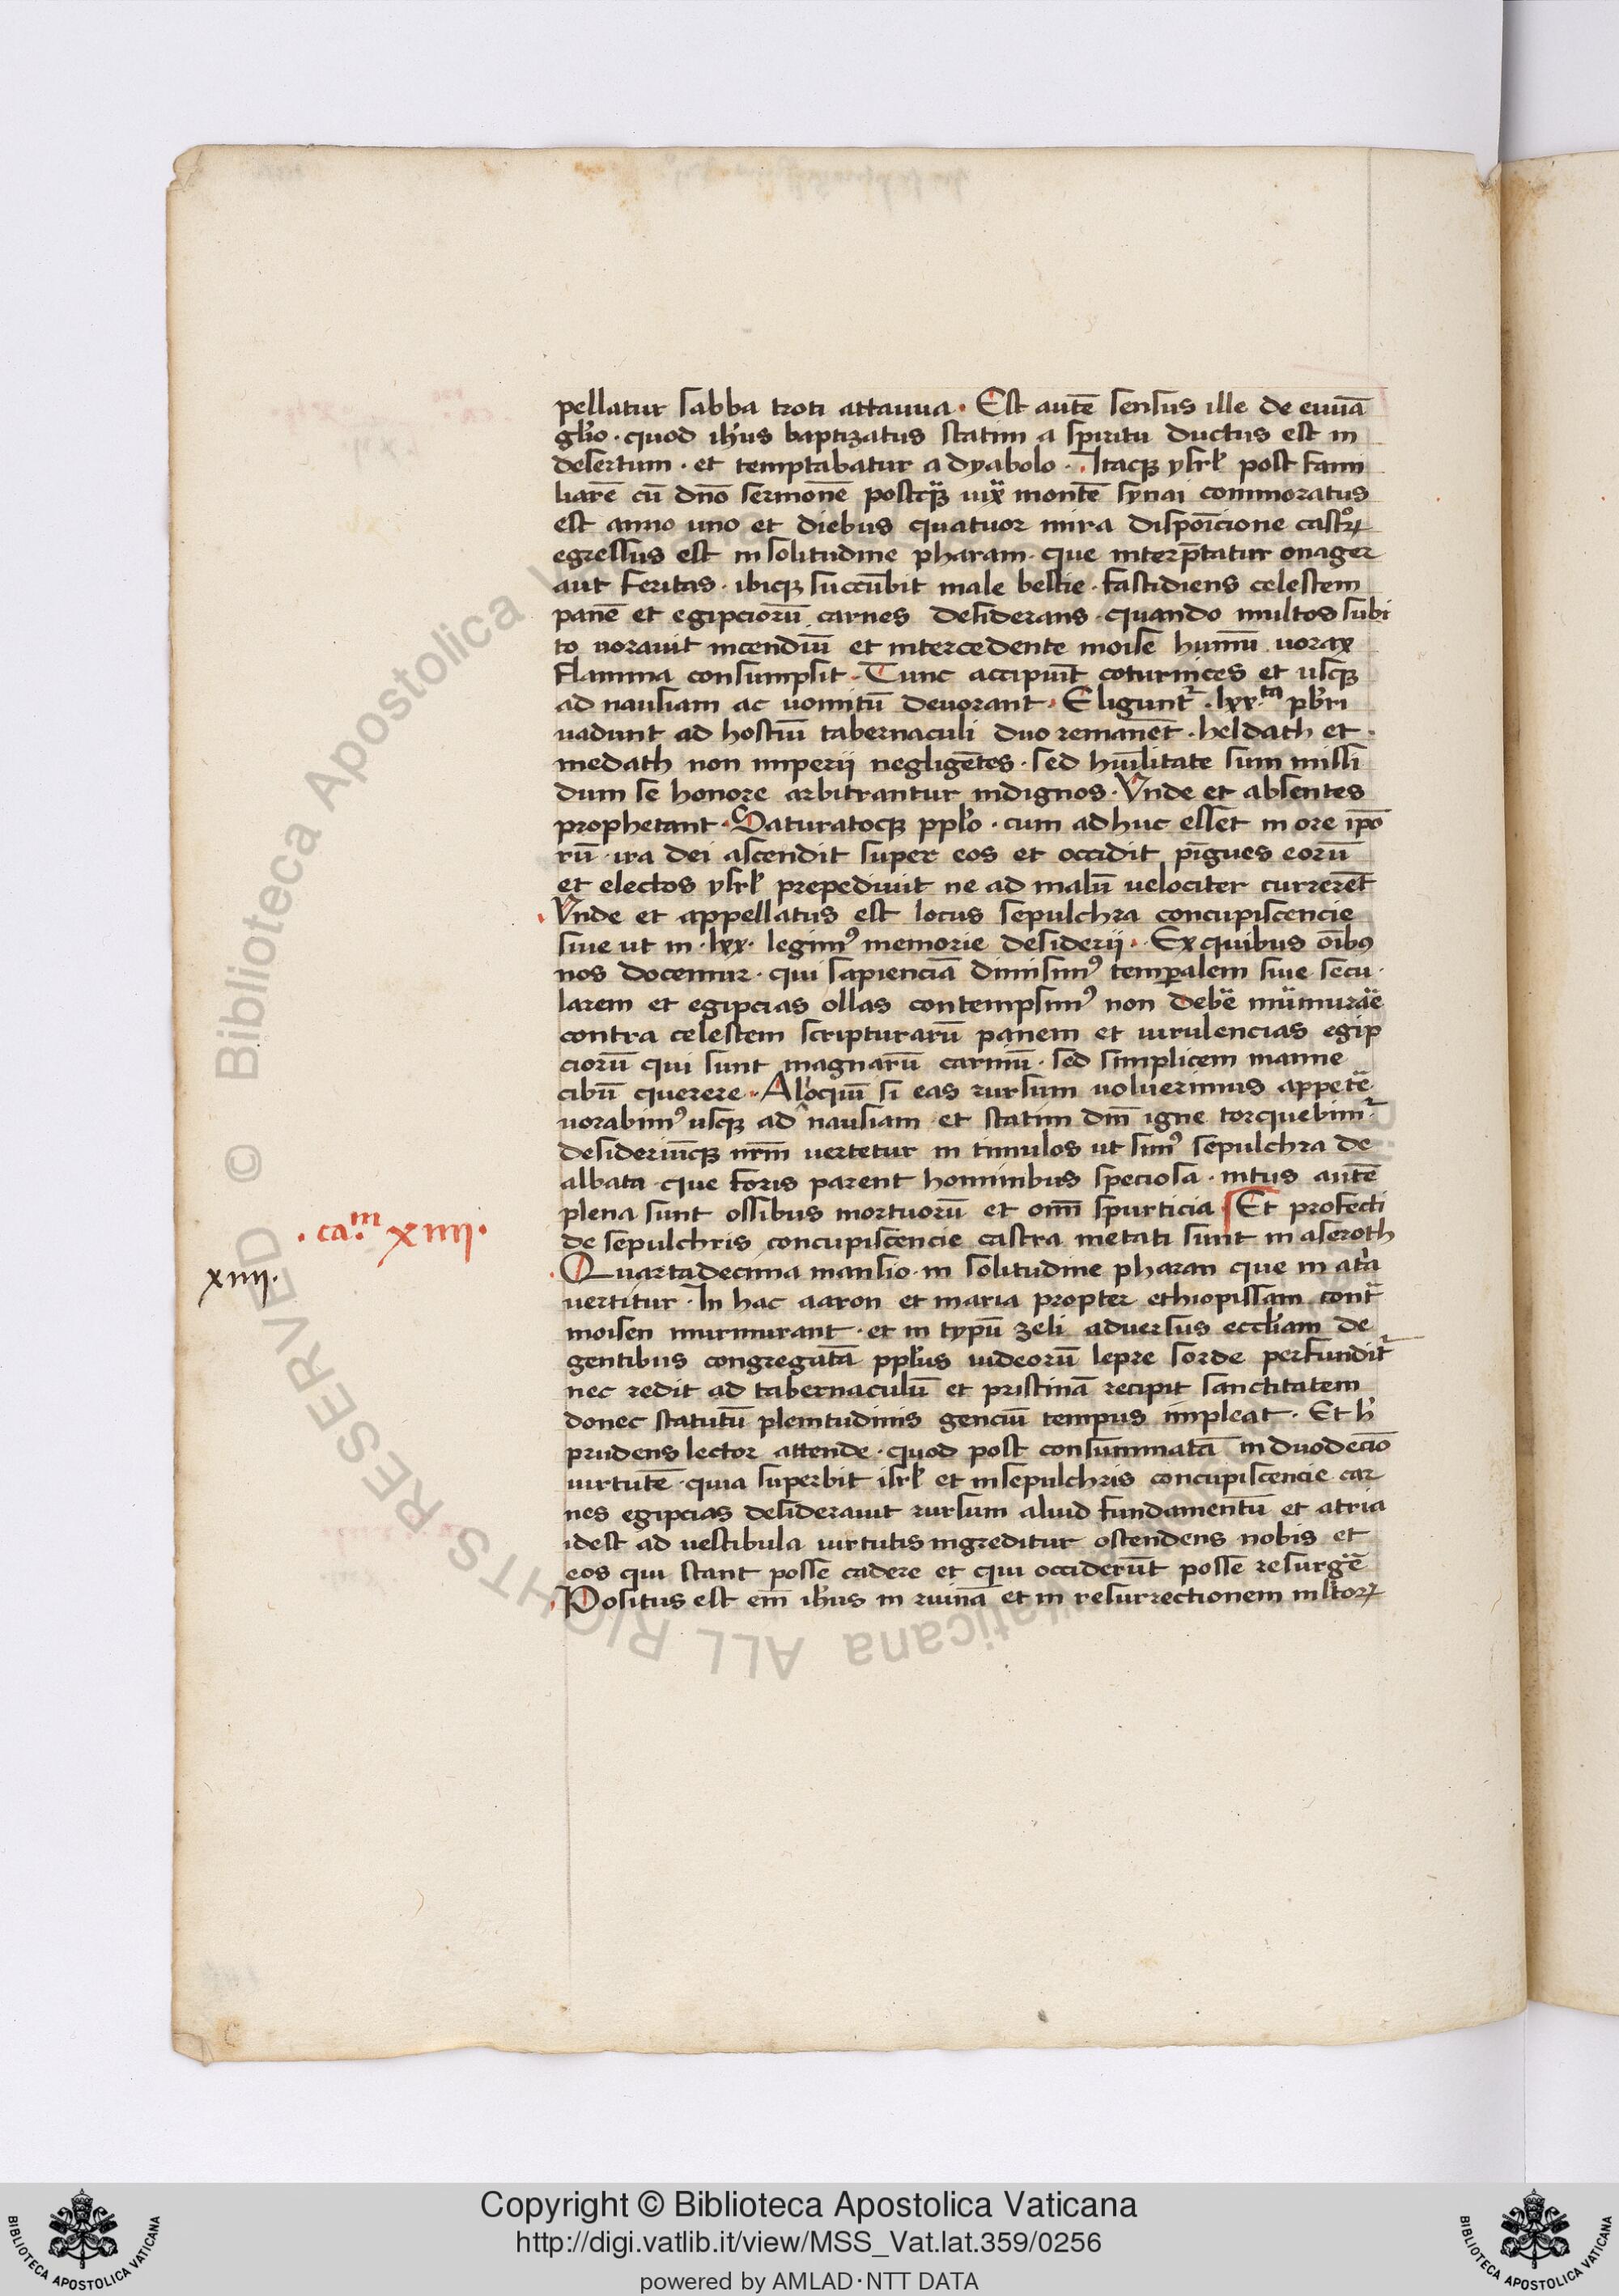 pellatur sabba troti attauua. Est autē sensus ille de euuā
glīo. quod ihūs baptizatus statim a spiritu ductus est in
desertum. et temptabatur a dyabolo. Itaqꝫ ysrƚ post fami
liarē cū dn̄o sermonē postqꝫ iuxͣ montē synai commoratus
est anno uno et diebus quatuor mira disposicione castroꝝ
egressus est in solitudine pharam. que interp̄tatur onager
aut feritas. ibiqꝫ succūbit male bestie. fastidiens celestem
panē et egipciorū carnes desiderans. quando multos subi
to uorauit incendiū et intercedente moise humū uorax
flamma consumpsit. Tunc accipiūt coturnices et usqꝫ
ad nausiam ac uomitū deuorant. Eliguntᷣ .lxx.ta pb̄ri
uadunt ad hostiū tabernaculi duo remanēt. heldath et.
medath non imperii negligētes. sed hūilitate sum missi
dum se honore arbitrantur indignos. Vnde et absentes
prophetant. Saturatoqꝫ pplo. cum adhuc esset in ore ipō
rū. ira dei ascendit super eos et occidit pīgues eorū
et electos ysrƚ prepediuit ne ad malū uelociter currerēt
Vnde et appellatus est locus sepulchra concupiscencie
siue ut in .lxx. legimꝰ memorie desiderii. Ex quibus oībꝰ
nos docemur. qui sapienciā dimisimꝰ temꝑalem siue secu.
larem et egipcias ollas contempsimꝰ non debē murmurare
contra celestem scripturarū panem et uirulencias egip
ciorū qui sunt magnarū carniū. sed simplicem manne
cibū querere. Alioquī si eas rursum uoluerimus appetē.
uorabimꝰ usqꝫ ad nausiam et statim dn̄i igne torquebimᷣ.
desideriūqꝫ nr̄m uertetur in tumulos ut simꝰ sepulchra de
albata que foris parent hominibus speciosa. intus autē
plena sunt ossibus mortuorū et om̄i spurticia. Et profecti
.ca.m xiiii.
de sepulchris concupiscencie castra metati sunt in aseroth
xiiii.
Quartadecima mansio. in solitudine pharan que in atria
uertitur. In hac aaron et maria propter ethiopissam contͣ
moisen murmurant. et in typū zeli aduersus eccliam de
gentibus congregatā pplus iudeorū lepre sorde perfunditᷣ
nec redit ad tabernaculū et pristinā recipit sanctitatem
donec statutū plenitudinis genciū tempus impleat. Et h̄
prudens lector attende. quod post consummatā in duodecīo
uirtutē. quia superbit isrƚ et in sepulchris concupiscencie car
nes egipcias desiderauit rursum aliud fundamentū et atria
idest ad uestibula uirtutis ingreditur ostendens nobis et
eos qui stant posse cadere et qui occiderūt posse resurgē
Positus est em̄ ihūs in ruinā et in resurrectionem mltoꝝ
© Biblioteca Apostolica Vaticana ALL RIGHTS RESERVED
Copyright © Biblioteca Apostolica Vaticana
http://digi.vatlib.it/view/MSS_Vat.lat.359/0256
powered by AMLAD·NTT DATA
BIBLIOTECA APOSTOLICA VATICANA
BIBLIOTECA APOSTOLICA VATICANA